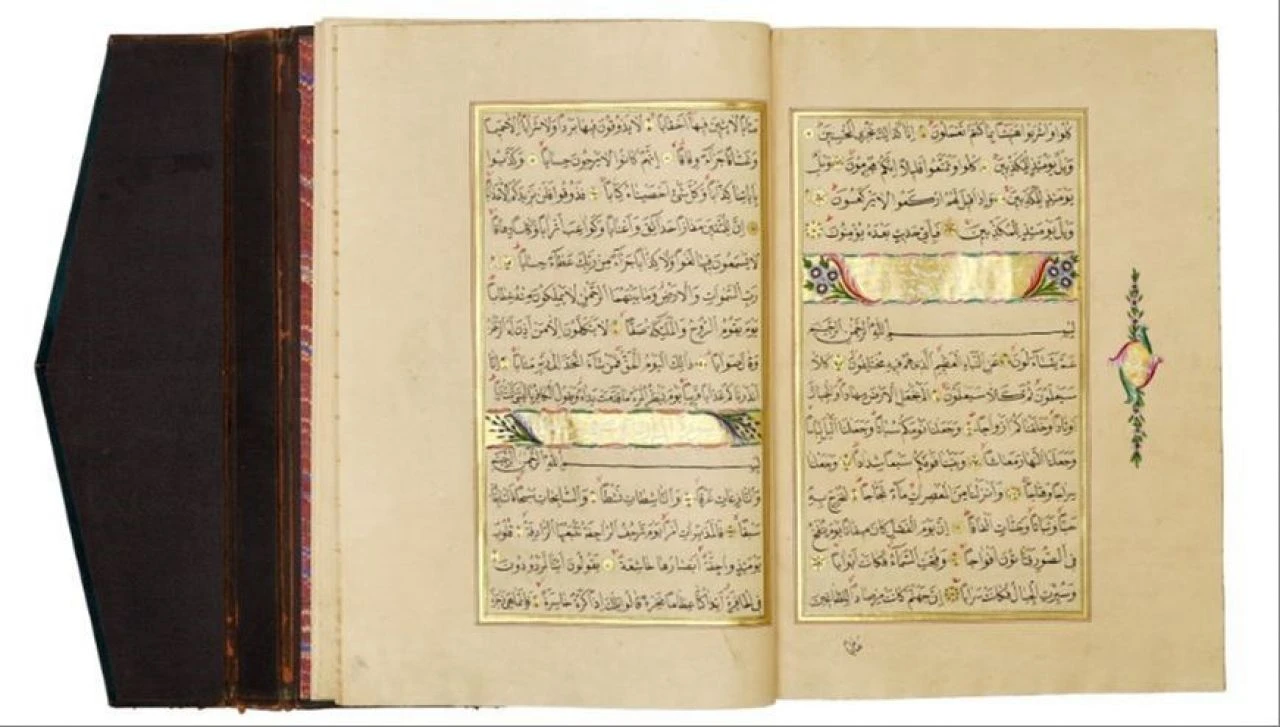 كلوا واشربوا هنيئا بما كنتم تعملون انا كذلك نجزي المحسنين
ويل يومئذ للمكذبين كلوا وتمتعوا قليلا انكم مجرمون ويل
يومئذ للمكذبين واذا قيل لهم اركعوا لا يركعون
ويل يومئذ للمكذبين فبأي حديث بعده يؤمنون
بسم الله الرحمن الرحيم
عم يتساءلون عن النبأ العظيم الذي هم فيه مختلفون كلا
سيعلمون ثم كلا سيعلمون الم نجعل الارض مهادا والجبال
اوتادا وخلقناكم ازواجا وجعلنا نومكم سباتا وجعلنا الليل لباسا
وجعلنا النهار معاشا وبنينا فوقكم سبعا شدادا وجعلنا
سراجا وهاجا وانزلنا من المعصرات ماء ثجاجا لنخرج به
حبا ونباتا وجنات الفافا ان يوم الفصل كان ميقاتا يوم ينفخ
في الصور فتأتون افواجا وفتحت السماء فكانت ابوابا
وسيرت الجبال فكانت سرابا ان جهنم كانت مرصادا للطاغين
مئابا لابثين فيها احقابا لا يذوقون فيها بردا ولا شرابا الا حميما
وغساقا جزاء وفاقا انهم كانوا لا يرجون حسابا وكذبوا
بآياتنا كذابا وكل شيء احصيناه كتابا فذوقوا فلن نزيدكم الا عذابا
ان للمتقين مفازا حدائق واعنابا وكواعب اترابا وكأسا دهاقا
لا يسمعون فيها لغوا ولا كذابا جزاء من ربك عطاء حسابا
رب السموات والارض وما بينهما الرحمن لا يملكون منه خطابا
يوم يقوم الروح والملئكة صفا لا يتكلمون الا من اذن له الرحمن
وقال صوابا ذلك اليوم الحق فمن شاء اتخذ الى ربه مئابا انا
انذرناكم عذابا قريبا يوم ينظر المرء ما قدمت يداه ويقول الكافر يا ليتني كنت ترابا
بسم الله الرحمن الرحيم
والنازعات غرقا والناشطات نشطا والسابحات سبحا فالسابقات
سبقا فالمدبرات امرا يوم ترجف الراجفة تتبعها الرادفة قلوب
يومئذ واجفة ابصارها خاشعة يقولون ائنا لمردودون
في الحافرة ائذا كنا عظاما نخرة قالوا تلك اذا كرة خاسرة فانما هي زجرة